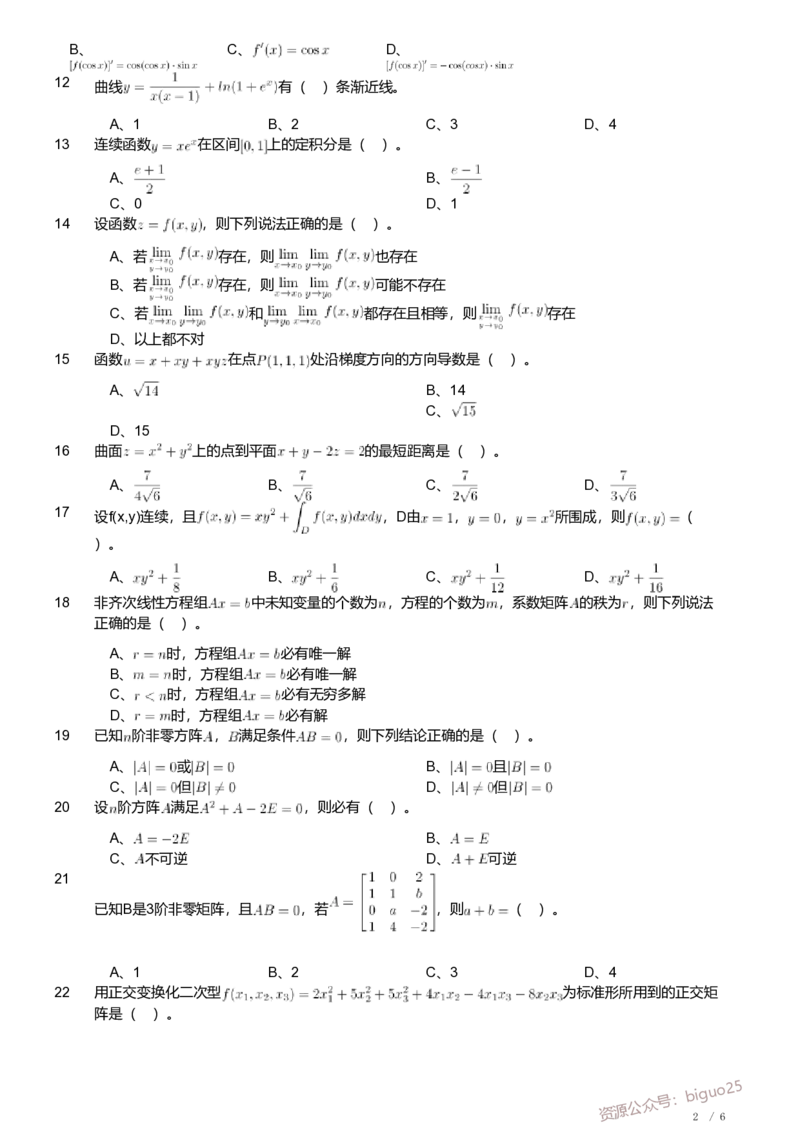 B、 C、f′(x) = cos x D、
[f(cos x)]′ = cos(cos x) · sin x [f(cos x)]′ = − cos(cosx) · sin x
12 曲线y = 1/(x(x − 1)) + ln(1 + e^x)有（ ）条渐近线。
A、1 B、2 C、3 D、4
13 连续函数y = xe^x在区间[0, 1]上的定积分是（ ）。
A、(e + 1)/2 B、(e − 1)/2
C、0 D、1
14 设函数z = f(x, y)，则下列说法正确的是（ ）。
A、若lim_{x→x₀, y→y₀} f(x, y)存在，则lim_{x→x₀} lim_{y→y₀} f(x, y)也存在
B、若lim_{x→x₀, y→y₀} f(x, y)存在，则lim_{x→x₀} lim_{y→y₀} f(x, y)可能不存在
C、若lim_{x→x₀} lim_{y→y₀} f(x, y)和lim_{y→y₀} lim_{x→x₀} f(x, y)都存在且相等，则lim_{x→x₀, y→y₀} f(x, y)存在
D、以上都不对
15 函数u = x + xy + xyz在点P(1, 1, 1)处沿梯度方向的方向导数是（ ）。
A、√14 B、14
C、√15
D、15
16 曲面z = x² + y²上的点到平面x + y − 2z = 2的最短距离是（ ）。
A、7/(4√6) B、7/√6 C、7/(2√6) D、7/(3√6)
17 设f(x,y)连续，且f(x, y) = xy² + ∫_D f(x, y)dxdy，D由x = 1，y = 0，y = x²所围成，则f(x, y) =（
）。
A、xy² + 1/8 B、xy² + 1/6 C、xy² + 1/12 D、xy² + 1/16
18 非齐次线性方程组Ax = b中未知变量的个数为n，方程的个数为m，系数矩阵A的秩为r，则下列说法
正确的是（ ）。
A、r = n时，方程组Ax = b必有唯一解
B、m = n时，方程组Ax = b必有唯一解
C、r < n时，方程组Ax = b必有无穷多解
D、r = m时，方程组Ax = b必有解
19 已知n阶非零方阵A，B满足条件AB = 0，则下列结论正确的是（ ）。
A、|A| = 0或|B| = 0 B、|A| = 0且|B| = 0
C、|A| = 0但|B| ≠ 0 D、|A| ≠ 0但|B| = 0
20 设n阶方阵A满足A² + A − 2E = 0，则必有（ ）。
A、A = −2E B、A = E
C、A不可逆 D、A + E可逆
21
已知B是3阶非零矩阵，且AB = 0，若A = [1 0 2; 1 1 b; 0 a −2; 1 4 −2]，则a + b =（ ）。
A、1 B、2 C、3 D、4
22 用正交变换化二次型f(x₁, x₂, x₃) = 2x₁² + 5x₂² + 5x₃² + 4x₁x₂ − 4x₁x₃ − 8x₂x₃为标准形所用到的正交矩
阵是（ ）。
资源公众号：biguo25
2 / 6